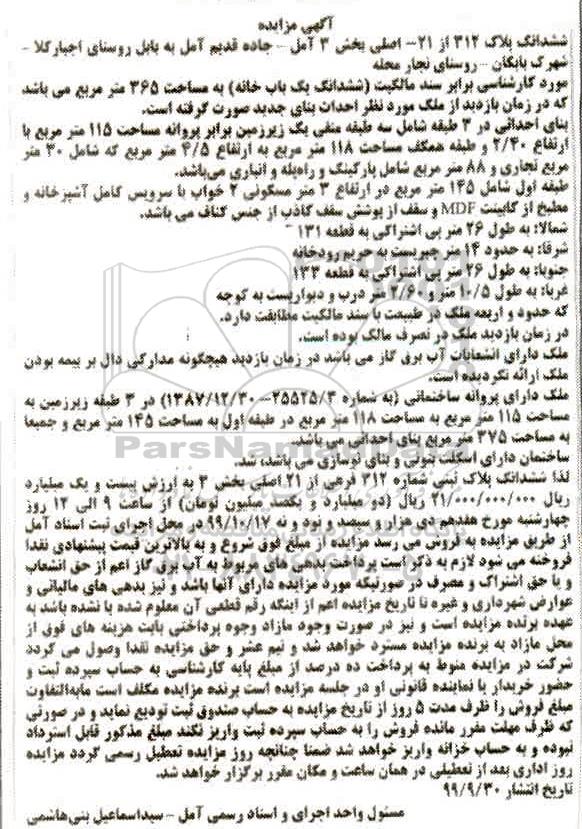 آگهی مزایده
ششدانگ پلاک ۳۱۲ از ۲۱- اصلی بخش ۳ آمل – جاده قدیم آمل به بابل روستای اجبارکلا –
شهرک بابکان – روستای نجار محله
مورد کارشناسی برابر سند مالکیت (ششدانگ یک باب خانه) به مساحت ۳۶۵ متر مربع می باشد
که در زمان بازدید از ملک مورد نظر احداث بنای جدید صورت گرفته است.
بنای احداثی در ۳ طبقه شامل سه طبقه منفی یک زیرزمین برابر پروانه مساحت ۱۱۵ متر مربع با
ارتفاع ۲/۴۰ و طبقه همکف مساحت ۱۱۸ متر مربع به ارتفاع ۴/۵ متر مربع که شامل ۳۰ متر
مربع تجاری و ۸۸ متر مربع شامل پارکینگ و راه‌پله و انباری می‌باشد.
طبقه اول شامل ۱۴۵ متر مربع در ارتفاع ۳ متر مسکونی ۲ خواب با سرویس کامل آشپزخانه و
مطبخ از کابینت MDF و سقف از پوشش سقف کاذب از جنس کناف می باشد.
شمالا: به طول ۲۶ متر پی اشتراکی به قطعه ۱۳۱
شرقا: به حدود ۱۴ متر چپریست به حریم رودخانه
جنوبا: به طول ۲۶ متر پی اشتراکی به قطعه ۱۳۳
غربا: به طول ۱۰/۵ متر و ۲/۶۰ متر درب و دیواریست به کوچه
که حدود و اربعه ملک در طبیعت با سند مالکیت مطابقت دارد.
در زمان بازدید ملک در تصرف مالک بوده است.
ملک دارای انشعابات آب برق گاز می باشد در زمان بازدید هیچگونه مدارکی دال بر بیمه بودن
ملک ارائه نگردیده است.
ملک دارای پروانه ساختمانی (به شماره ۲۵۵۲۵/۳- ۱۳۸۷/۱۲/۳۰) در ۳ طبقه زیرزمین به
مساحت ۱۱۵ متر مربع به مساحت ۱۱۸ متر مربع در طبقه اول به مساحت ۱۴۵ متر مربع و جمیعا
به مساحت ۳۷۵ متر مربع بنای احداثی می باشد.
ساختمان دارای اسکلت بتونی و بنای نوسازی می باشد، شد.
لذا ششدانگ پلاک ثبتی شماره ۳۱۲ فرعی از ۲۱ اصلی بخش ۳ به ارزش بیست و یک میلیارد
ریال ۲۱/۰۰۰/۰۰۰/۰۰۰ ریال (دو میلیارد و یکصد میلیون تومان) از ساعت ۹ الی ۱۲ روز
چهارشنبه مورخ هفدهم دی هزار و سیصد و نود و نه ۹۹/۱۰/۱۷ در محل اجرای ثبت اسناد آمل
از طریق مزایده به فروش می رسد مزایده از مبلغ فوق شروع و به بالاترین قیمت پیشنهادی نقدا
فروخته می شود لازم به ذکر است پرداخت بدهی های مربوط به آب برق گاز اعم از حق انشعاب
و یا حق اشتراک و مصرف در صورتیکه مورد مزایده دارای آنها باشد و نیز بدهی های مالیاتی و
عوارض شهرداری و غیره تا تاریخ مزایده اعم از اینکه رقم قطعی آن معلوم شده یا نشده باشد به
عهده برنده مزایده است و نیز در صورت وجود مازاد وجوه پرداختی بابت هزینه های فوق از
محل مازاد به برنده مزایده مسترد خواهد شد و نیم عشر و حق مزایده نقدا وصول می گردد
شرکت در مزایده منوط به پرداخت ده درصد از مبلغ پایه کارشناسی به حساب سپرده ثبت و
حضور خریدار یا نماینده قانونی او در جلسه مزایده است برنده مزایده مکلف است مابه‌التفاوت
مبلغ فروش را ظرف مدت ۵ روز از تاریخ مزایده به حساب صندوق ثبت تودیع نماید و در صورتی
که ظرف مهلت مقرر مانده فروش را به حساب سپرده ثبت واریز نکند مبلغ مذکور قابل استرداد
نبوده و به حساب خزانه واریز خواهد شد ضمنا چنانچه روز مزایده تعطیل رسمی گردد مزایده
روز اداری بعد از تعطیلی در همان ساعت و مکان مقرر برگزار خواهد شد.
تاریخ انتشار ۹۹/۹/۳۰
مسئول واحد اجرای و اسناد رسمی آمل – سیداسماعیل بنی‌هاشمی
ParsNamadData